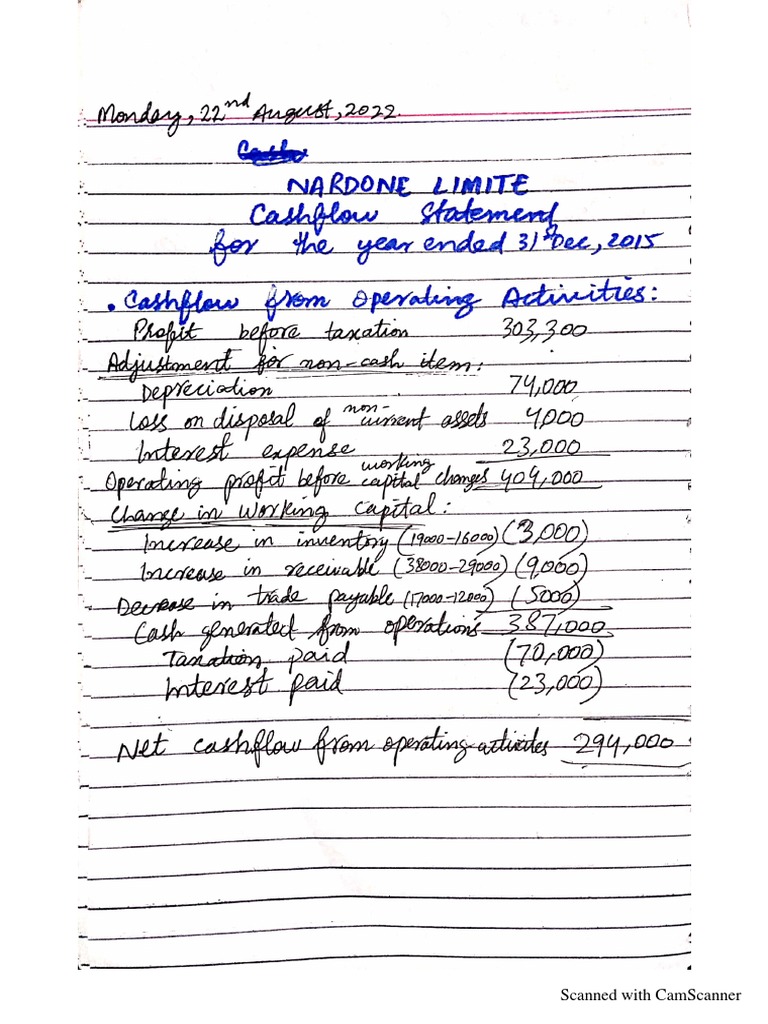 Monday, 22nd August, 2022.
NARDONE LIMITE
Cashflow Statement
for the year ended 31st Dec, 2015
• Cashflow from Operating Activities:
Profit before taxation 303,300
Adjustment for non-cash item:
Depreciation 74,000
Loss on disposal of non-current assets 4,000
Interest expense 23,000
Operating profit before working capital changes 404,000
Change in Working Capital:
Increase in inventory (19000-16000) (3,000)
Increase in receivable (38000-29000) (9,000)
Decrease in trade payable (17000-12000) (5000)
Cash generated from operations 387,000
Taxation paid (70,000)
Interest paid (23,000)
Net cashflow from operating activites 294,000
Scanned with CamScanner